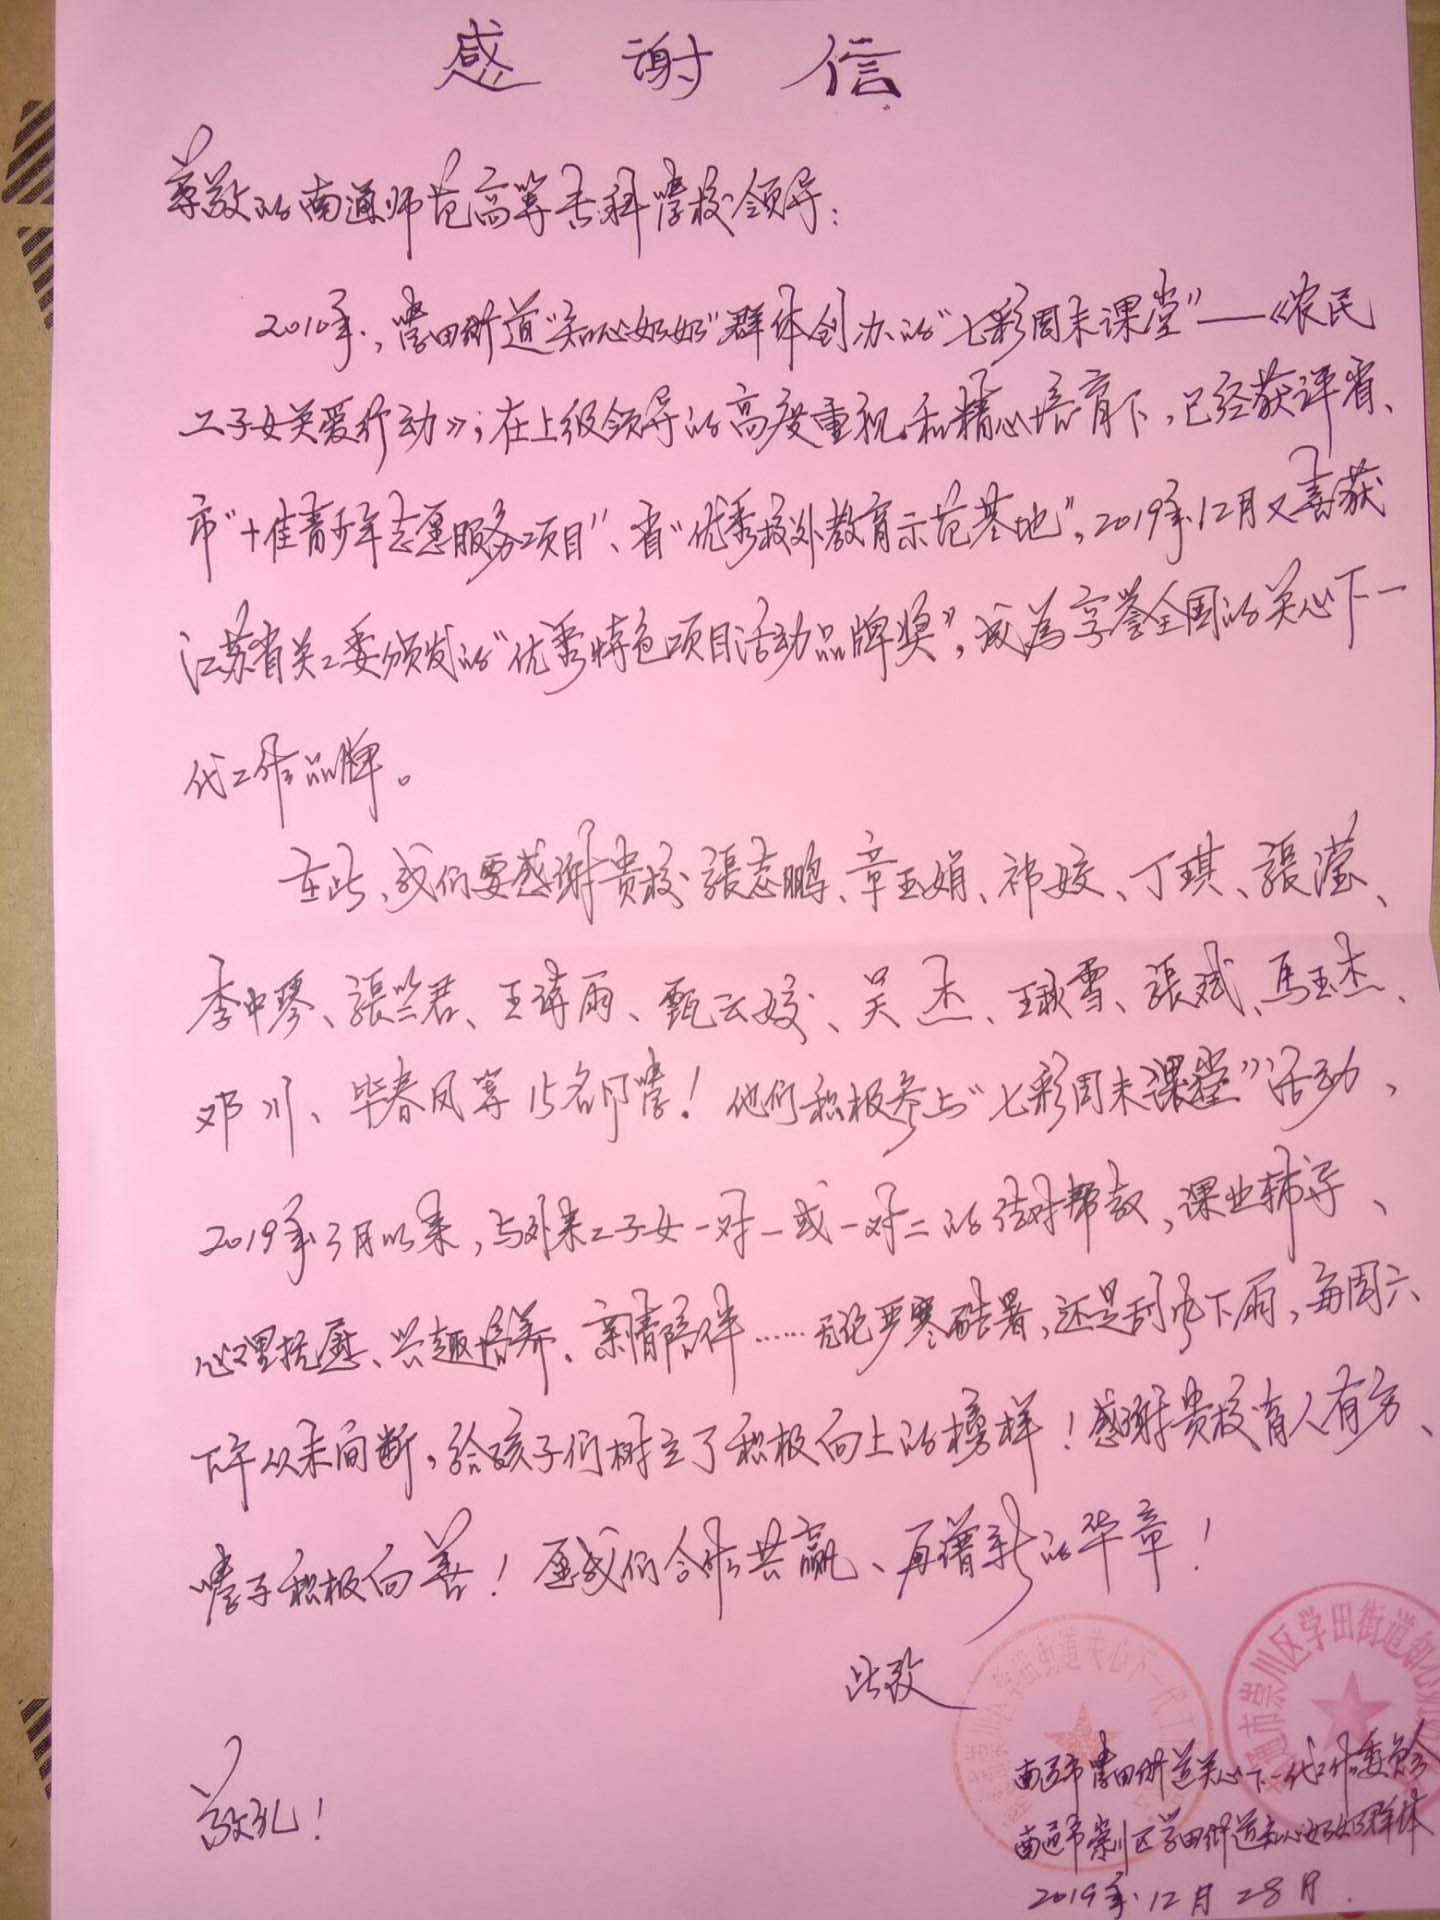 感谢信
尊敬的南通师范高等专科学校领导：
2010年，学田街道“知心奶奶”群体创办的“七彩周末课堂”——《农民
工子女关爱行动》；在上级领导的高度重视和精心培育下，已经获评省、
市“十佳青少年志愿服务项目”、省“优秀校外教育示范基地”，2019年12月又喜获
江苏省关工委颁发的“优秀特色项目活动品牌奖”，成为享誉全国的关心下一
代工作品牌。
在此，我们要感谢贵校張志鹏、章玉娟、祁姣、丁琪、張滢、
李中琴、張竺君、王诗雨、甄云姣、吴杰、王秋雪、張斌、馬玉杰、
邓川、毕春凤等15名同學！他们积极参与“七彩周末課堂”活动，
2019年3月以来，与外来工子女一对一或一对二的结对帮教，课业辅导、
心理抚慰、兴趣培养、亲情陪伴……无论严寒酷暑，还是刮风下雨，每周六
下午从未间断，给孩子们树立了积极向上的榜样！感谢贵校育人有方、
學子积极向善！愿我们合作共赢、再谱新的华章！
此致
敬礼！
南通市學田街道关心下一代工作委员会
南通市崇川区学田街道知心奶奶群体
2019年12月28日.
崇川区学田街道关心下一代工
南通市崇川区学田街道知心